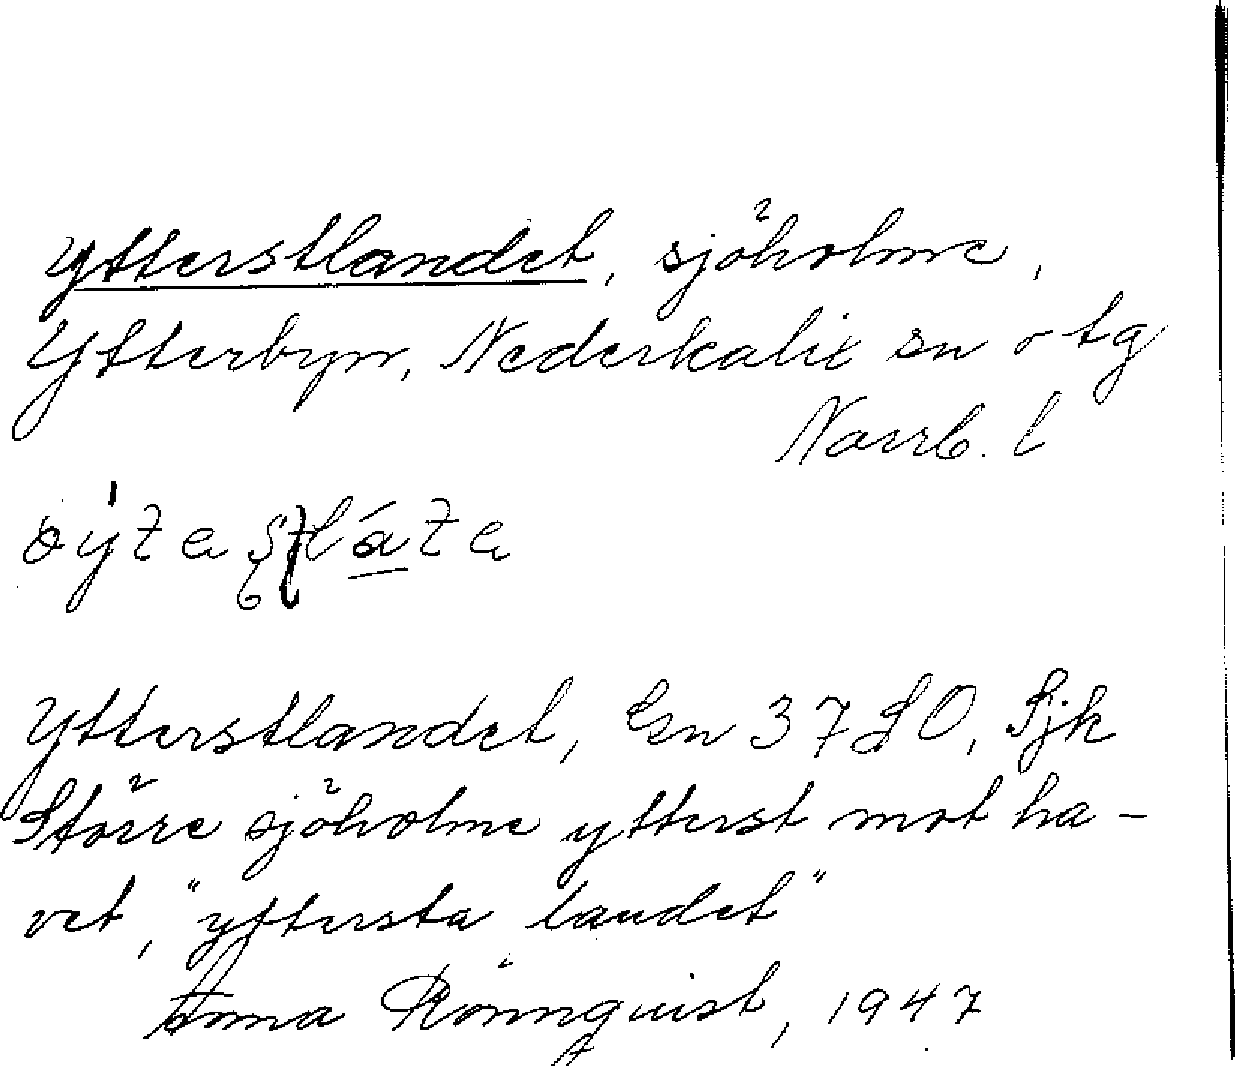 Ytterstlandet, sjöholme,
Ytterbyn, Nederkalix sn o tg
Norrb. l
Ytterstlandet, 37 SO, Sjk
Större sjöholme ytterst mot ha-
vet, "yttersta landet"
Anna Rönnquist, 1947